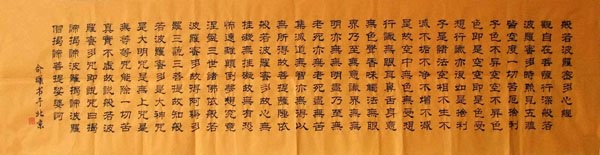 般若波羅蜜多心經
觀自在菩薩行深般若
波羅蜜多時照見五蘊
皆空度一切苦厄捨利
子色不異空空不異色
色即是空空即是色受
想行識亦復如是捨利
子是諸法空相不生不
滅不垢不淨不增不減
是故空中無色無受想
行識無眼耳鼻舌身意
無色聲香味觸法無眼
界乃至無意識界無無
明亦無無明盡乃至無
老死亦無老死盡無苦
集滅道無智亦無得以
無所得故菩提薩埵依
般若波羅蜜多故心無
挂礙無挂礙故無有恐
怖遠離顛倒夢想究竟
涅槃三世諸佛依般若
波羅蜜多故得阿耨多
羅三藐三菩提故知般
若波羅蜜多是大神咒
是大明咒是無上咒是
無等等咒能除一切苦
真實不虛故說般若波
羅蜜多咒即說咒曰揭
諦揭諦波羅揭諦波羅
僧揭諦菩提娑婆訶
书于北京